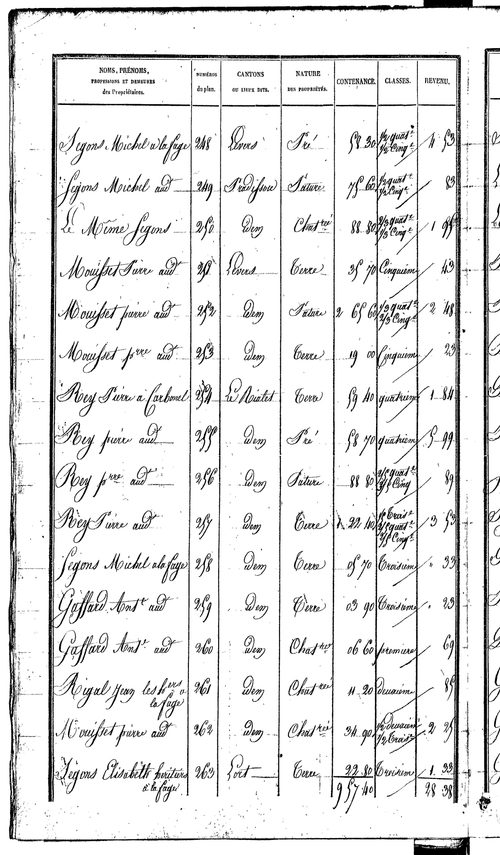 NOMS, PRÉNOMS, PROFESSIONS ET DEMEURES des Propriétaires. NUMÉROS du plan. CANTONS OU LIEUX DITS. NATURE DES PROPRIÉTÉS. CONTENANCE. CLASSES. REVENU.
Segons Michel à la fage 248 Levers Pré 58 30 1/2 quat.e 1/2 cinq.e 4 53
Segons Michel aud 249 Pradissou Pature 75 60 1/2 quat.e 1/2 cinq.e 83
Le Même Segons 250 idem Chat.ree 88 80 1/3 quat.e 2/3 cinq.e 1 95
Mouisset Pierre aud 251 Levers Terre 35 70 Cinquieme 43
Mouisset pierre aud 252 idem Pature 2 65 60 1/3 quat.e 2/3 cinq.e 2 48
Mouisset p.rre aud 253 idem Terre 19 00 Cinquieme 23
Rey Pierre a Carbonel 254 Le Riatet Terre 59 40 quatrieme 1 84
Rey pierre aud 255 idem Pré 58 70 quatrieme 5 99
Rey p.rre aud 256 idem Pature 88 80 quat.e Cinq 89
Rey Pierre aud 257 idem Terre 1 22 40 Trois.e quat.e Cinq.e 3 53
Segons Michel à la fage 258 idem Terre 05 70 Troisieme " 33
Gaffard Ant.e aud 259 idem Terre 03 90 Troisième " 23
Gaffard Ant.e aud 260 idem Chat.ree 06 60 premiere 69
Rigal Jean les h.ers à la fage 261 idem Chat.ree 11 20 deuxieme 85
Mouisset pierre aud 262 idem Chat.ree 34 90 1/2 deuxieme 1/2 Trois.e 2 25
Segons Elisabeth heritiers à la fage 263 Lort Terre 22 80 Troisiem 1 33
9 57 40 28 38